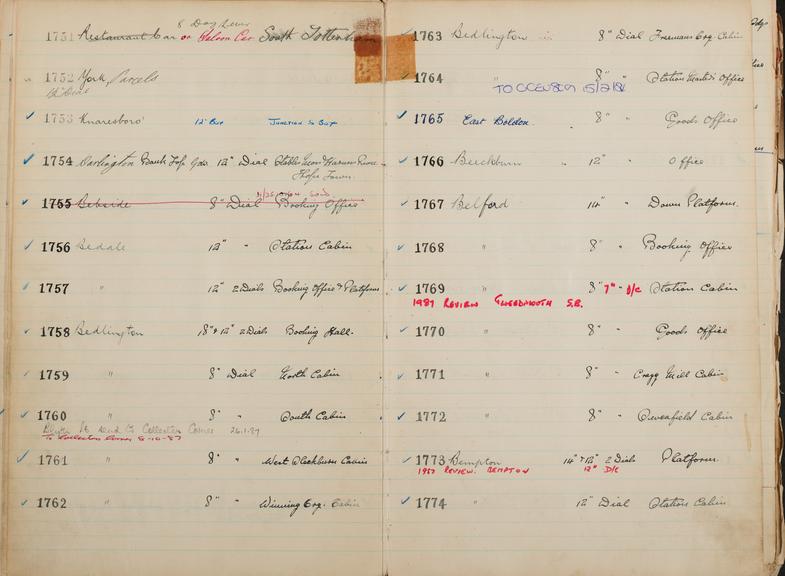 8 Day Lever
1751 Restaurant Car or Saloon Car South Tottenham
1752 York, Parcels
12" Dial
1753 Knaresboro' 12" Box Junction S Box
1754 Darlington Bank Top Gds 12" Dial
1755 Bebside 8" Dial Booking Office
1756 Bedale 12" " Station Cabin
1757 " 12" 2 Dials Booking Office & Platform
1758 Bedlington 18" & 12" 2 Dials Booking Hall.
1759 " 8" Dial North Cabin
1760 " 8" " South Cabin
Blyth to send to Collectors Corner 26.1.87
To Collectors Corner 8-10-87
1761 " 8" " West Sleekburn Cabin
1762 8" " Winning Crg. Cabin
1763 Bedlington 8" Dial Freemans Crg. Cabin
1764 " 8" " Station Master's Office
1765 East Boldon 8" " Goods Office
1766 12" Office
1767 Belford 14" " Down Platform.
1768 " 8" " Booking Office
1769 " 8" 7" " D/C Station Cabin
1987 REVIEW TWEEDMOUTH S.B.
1770 " 8" " Goods Office
1771 " 8" " Cragg Mill Cabin
1772 " 8" " Cabin
1773 Bempton 14" & 12" 2 Dials Platform.
1987 REVIEW. BEMPTON 12" D/C
1774 " 12" Dial Station Cabin